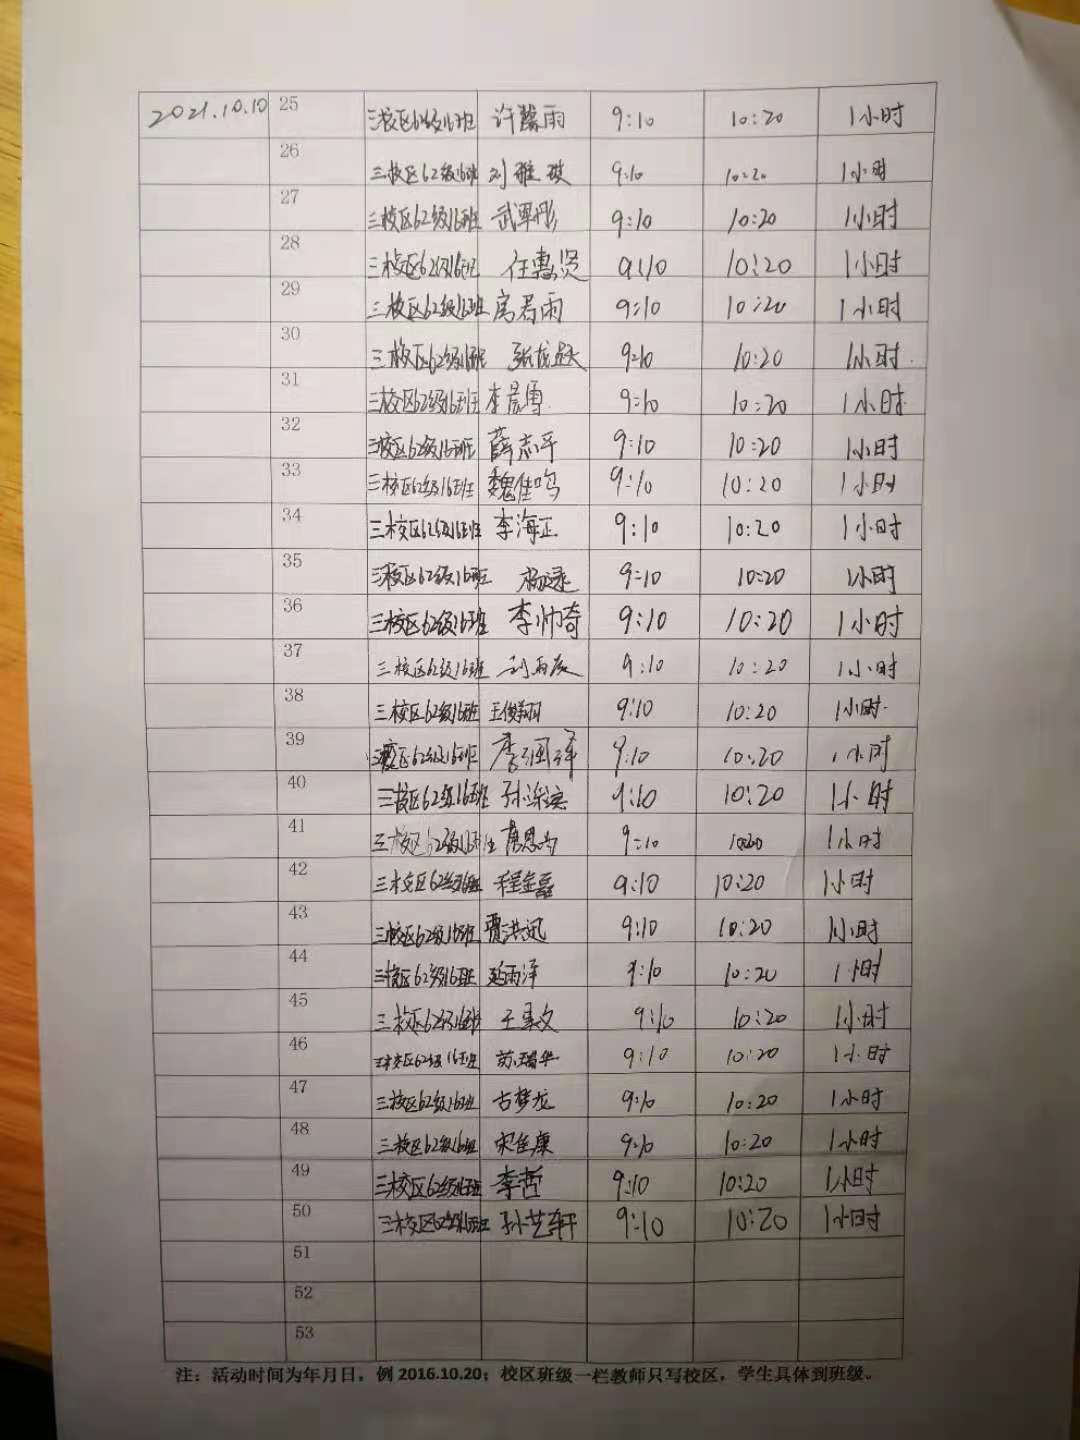 2021.10.10 25 三校区62级16班 许馨雨 9:10 10:20 1小时
26 三校区62级16班 刘雅琪 9:10 10:20 1小时
27 三校区62级16班 武軍彤 9:10 10:20 1小时
28 三校区62级16班 任惠贤 9:10 10:20 1小时
29 三校区62级16班 房君雨 9:10 10:20 1小时
30 三校区62级16班 张龙跃 9:10 10:20 1小时
31 三校区62级16班 李晨 9:10 10:20 1小时
32 三校区62级16班 薛志平 9:10 10:20 1小时
33 三校区62级16班 魏佳鸣 9:10 10:20 1小时
34 三校区62级16班 李海正 9:10 10:20 1小时
35 三校区62级16班 杨 9:10 10:20 1小时
36 三校区62级16班 李帅奇 9:10 10:20 1小时
37 三校区62级16班 刘雨辰 9:10 10:20 1小时
38 三校区62级16班 王俊翔 9:10 10:20 1小时
39 三校区62级16班 李润泽 9:10 10:20 1小时
40 三校区62级16班 孙 9:10 10:20 1小时
41 三校区62级16班 9:10 1小时
42 三校区62级16班 程金磊 9:10 10:20 1小时
43 三校区62级16班 贾洪迅 9:10 10:20 1小时
44 三校区62级16班 赵雨泽 9:10 10:20 1小时
45 三校区62级16班 9:10 10:20 1小时
46 三校区62级16班 苏瑞华 9:10 10:20 1小时
47 三校区62级16班 古梦龙 9:10 10:20 1小时
48 三校区62级16班 宋佳康 9:10 10:20 1小时
49 三校区62级16班 李哲 9:10 10:20 1小时
50 三校区62级16班 孙艺轩 9:10 10:20 1小时
51
52
53
注：活动时间为年月日，例 2016.10.20；校区班级一栏教师只写校区，学生具体到班级。